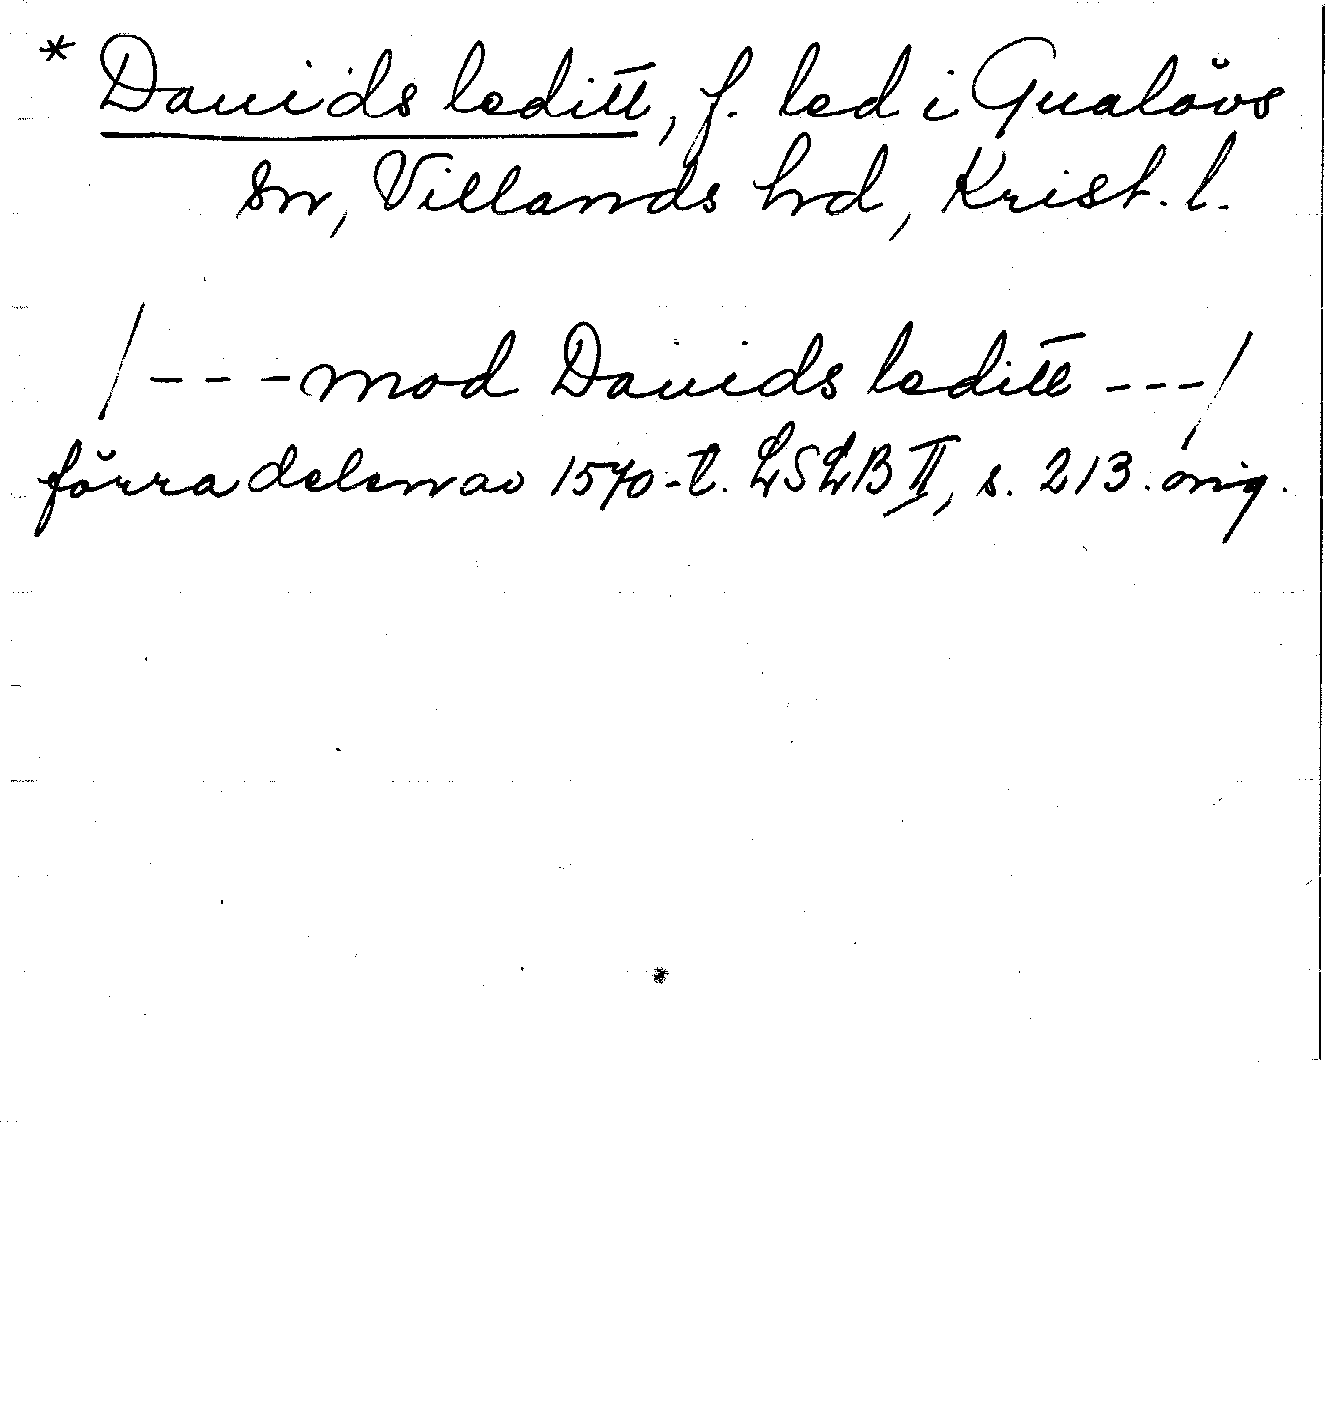 * Dauids leditt, f. led i Gualövs
sn, Villands hd, Krist. l.
/---mod Dauids leditt ---/
förra delen av 1570-t. LSLB II, s. 213. orig.